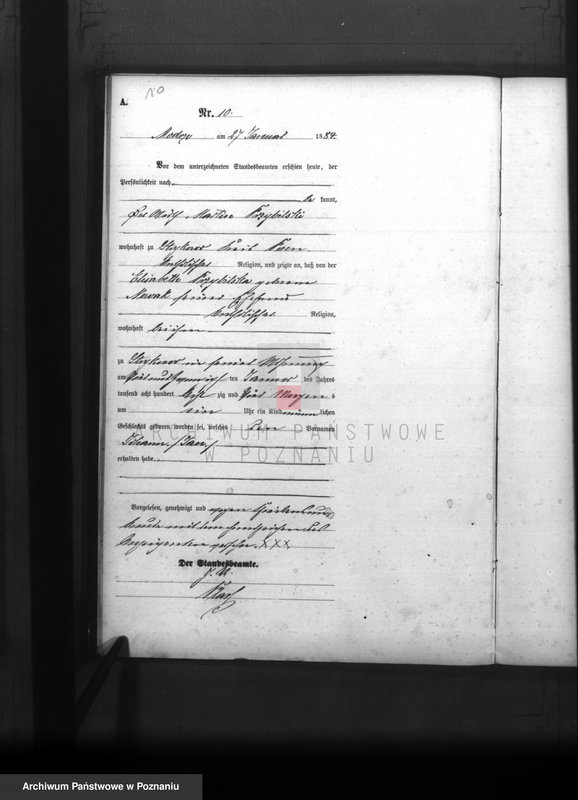 A.
10
Nr. 10.
am 27 Januar 1884
Vor dem unterzeichneten Standesbeamten erschien heute, der
Persönlichkeit nach
be kannt,
Przybilski
wohnhaft zu Kreis Posen
katholischer Religion, und zeigte an, daß von der
Elisabeth Przybilska geborene
Nowak seiner Ehefrau
katholischer Religion,
wohnhaft bei ihm
zu in seiner Wohnung
am ten Januar des Jahres
tausend acht hundert acht zig und vier Morgens
um ein Uhr ein Kind männlichen
Geschlechts geboren worden sei, welches den Vornamen
Johann /Jan/
erhalten habe.
Vorgelesen, genehmigt und wegen Schreibensun-
kunde mit dem Handzeichen des
XXX
Der Standesbeamte.
ARCHIWUM PAŃSTWOWE
W POZNANIU
Archiwum Państwowe w Poznaniu